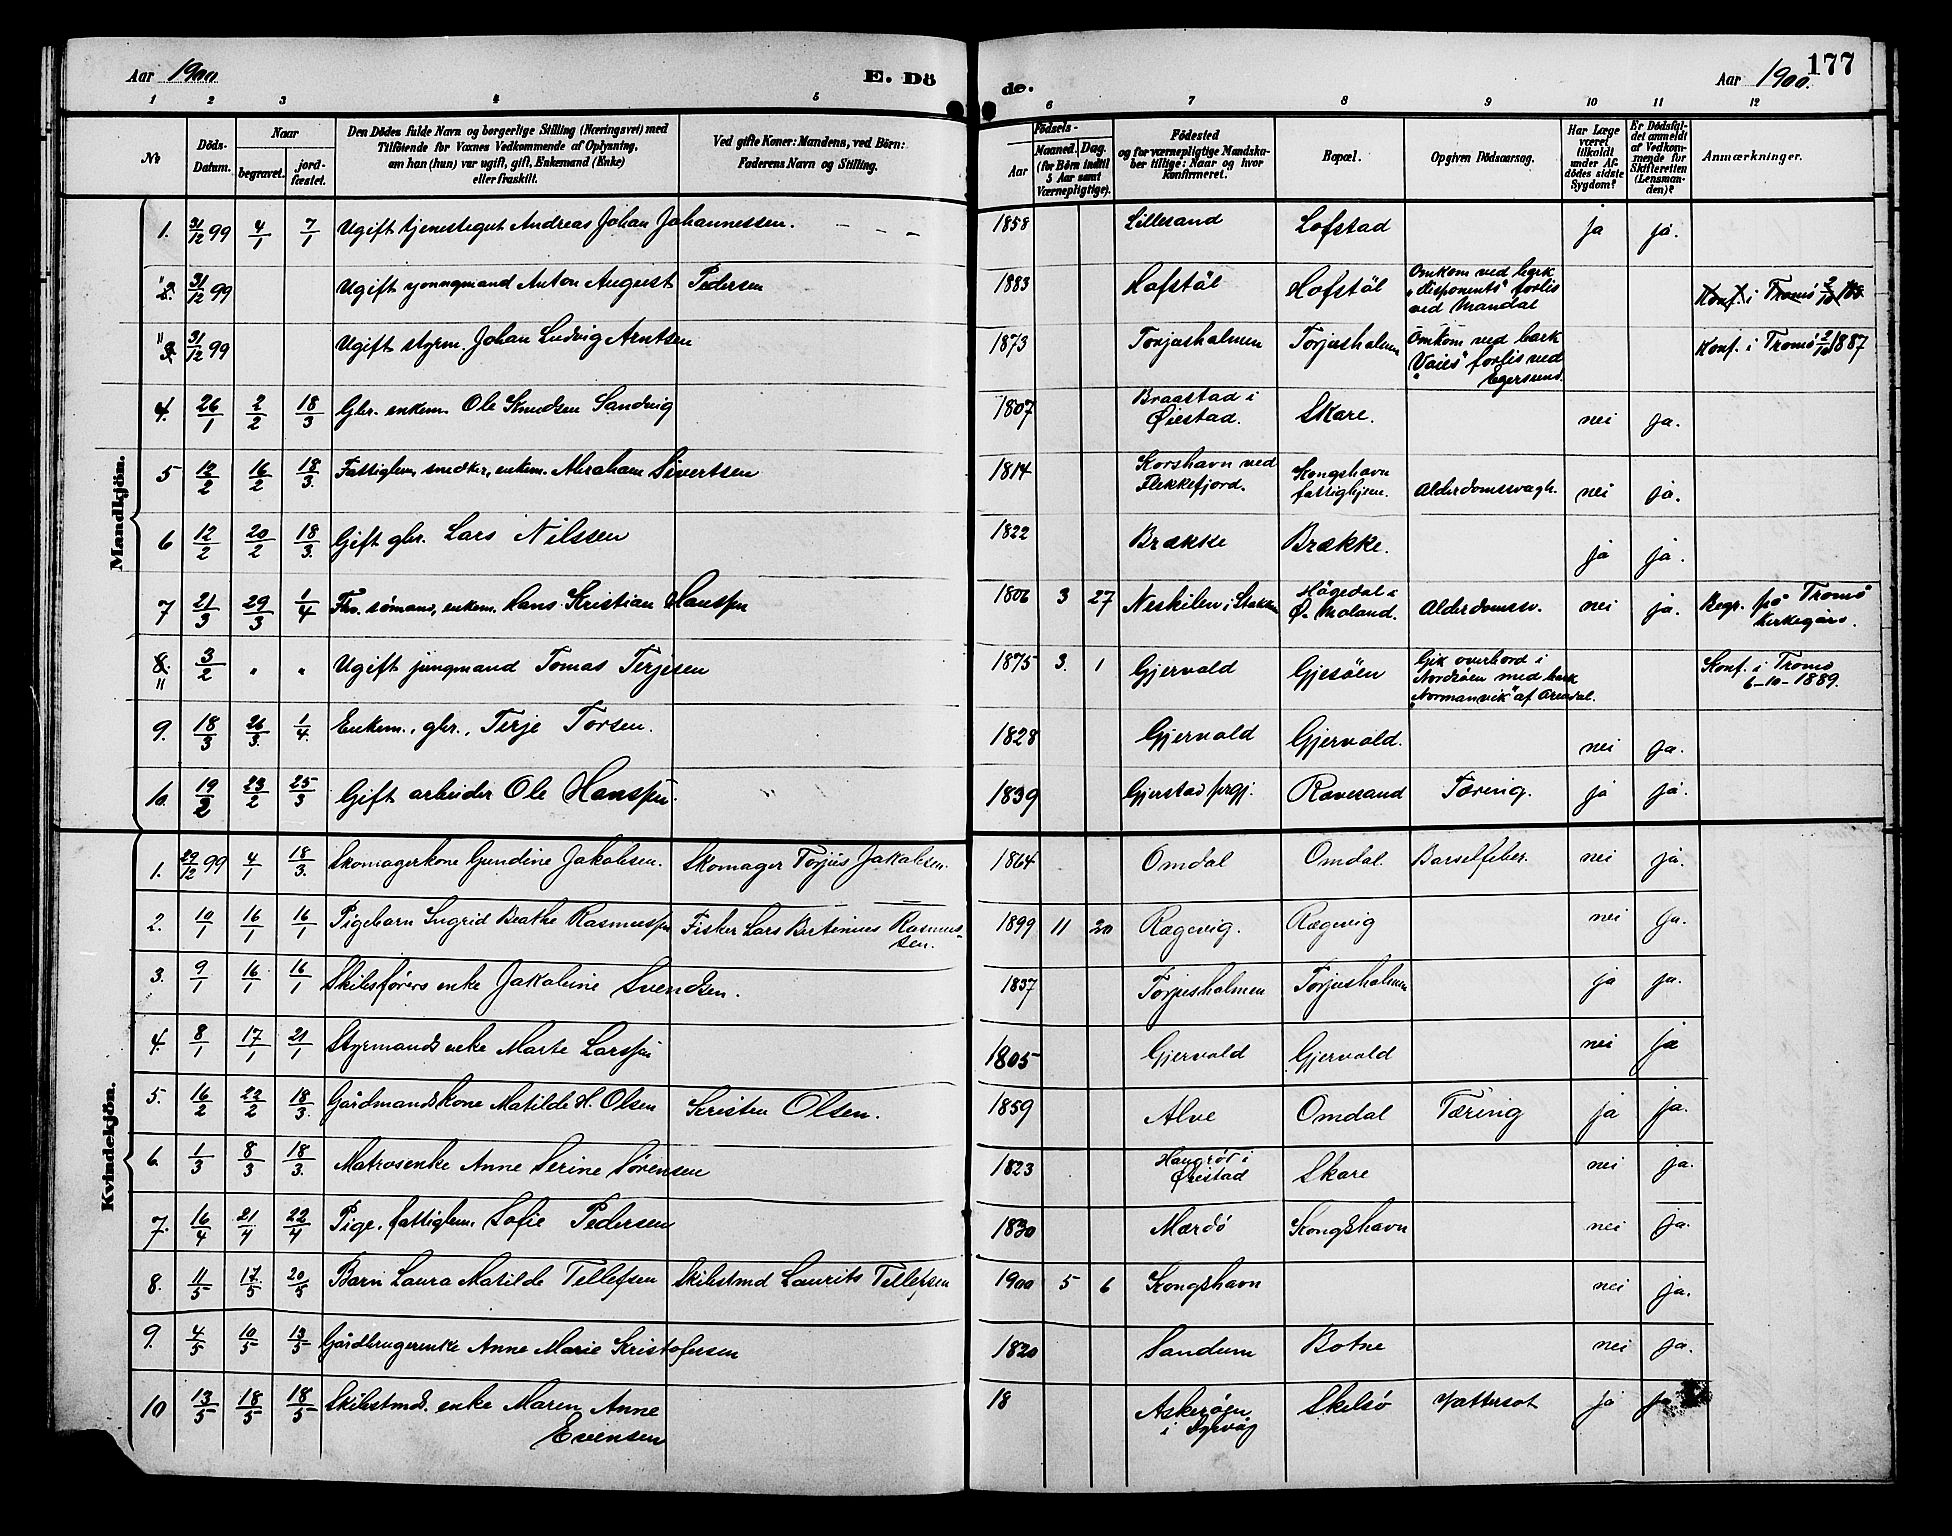 Aar 1900. E. Dö de. Aar 1900. 177
1 2 3 4 5 6 7 8 9 10 11 12
No
Döds-Datum.
Naar
begravet.
jord-fæstet.
Den Dödes fulde Navn og borgerlige Stilling (Næringsvei) med
Tilföiende for Voxnes Vedkommende af Oplysning,
om han (hun) var ugift, gift, Enkemand (Enke)
eller fraskilt.
Ved gifte Koner: Mandens, ved Börn:
Faderens Navn og Stilling.
Födsels-
Aar
Maaned. Dag.
(for Börn indtil
5 Aar samt
Værnepligtige).
Födested
og for værnepligtige Mandska-
ber tillige: Naar og hvor
konfirmeret.
Bopæl.
Opgiven Dödsaarsag.
Har Læge
været
tilkaldt
under Af-
dödes sidste
Sygdom?
Er Dödsfal-
det anmeldt
af Vedkom-
mende for
Skifteretten
(Lensman-
den)?
Anmærkninger.
Mandkjön.
1. 31/12 99 4/1 7/1 Ugift tjenestegut Andreas Johan Johannessen. 1858 Lillesand Lofstad ja ja.
2. 31/12 99 Ugift yonngmand Anton August Pedersen 1883 Hofstöl Hofstöl Omkom ved bark
"Disponents" forlis
ved Mandal
Konf. i Tromö
3. 31/12 99 Ugift styrm. Johan Ludvig Arntsen 1873 Torjusholmen Torjusholmen Omkom ved bark
"Vaies" forlis ved
Egersund.
Konf. i Tromö 2/10 1887
4. 26/1 2/2 18/3 Gbr. enkem. Ole Knudsen Sandvig 1807 Braastad i
Øiestad. Skare. nei ja.
5 12/2 16/2 18/3. Fattiglem, snedker, enkem. Abraham Sivertsen 1814 Korshavn ved
Flekkefjord. Kongshavn
fattighjem. Alderdomssvagh. nei ja.
6 12/2 20/2 18/3. Gift gbr. Lars Nilssen 1822 Brække Brække. ja ja.
7 21/3 29/3 1/4 Fhv. sömand, enkem. Hans Kristian Hanssen 1806 3 27 Neskilen i Stokken Högedal i
Ø. Moland. Alderdomssv. nei ja. Begr. på Tromö
kirkegård.
8. 3/2 " " Ugift jungmand Tomas Terjesen 1875 3. 1 Gjervold Gjesöen Gik overbord i
Nordsöen med bark
"Normanvik" af Arendal. Konf. i Tromö
6-10-1889.
9. 18/3 26/3. 1/4. Enkem., gbr., Terje Torsen. 1828 Gjervold Gjervold. nei ja.
10. 19/2 23/2 25/3 Gift arbeider Ole Hanssen. 1839 Gjerstad prgj. Revesand Tæring. ja ja.
Kvindekjön.
1. 29/12 99 4/1 18/3. Skomagerkone Gundine Jakobsen. Skomager Torjus Jakobsen. 1864 Omdal Omdal. Barselfeber. nei ja.
2. 10/1 16/1 16/1 Pigebarn Ingrid Beathe Rasmussen Fisker Lars Bertinius Rasmus-
sen. 1899 11 20 Rægevig. Rægevig nei ja.
3. 9/1 16/1 16/1 Skibsförers enke Jakobine Svendsen. 1837 Torjusholmen Torjusholmen ja ja.
4. 8/1 17/1 21/1 Styrmands enke Marte Larssen 1805 Gjervold Gjervold nei ja
5. 16/2 22/2 18/3. Gårdmandskone Matilde H. Olsen Kristen Olsen. 1859 Alve Omdal Tæring ja ja.
6. 1/3 8/3 18/3. Matrosenke Anne Serine Sörensen 1823 Haugröd i
Øiestad Skare nei ja.
7. 16/4 21/4 22/4 Pige, fattiglem. Sofie Pedersen 1830 Mærdö Kongshavn nei ja.
8. 11/5 17/5 20/5 Barn Laura Matilde Tellefsen Skibstmd Laurits Tellefsen 1900 5 6 Kongshavn nei ja.
9. 4/5 10/5 13/5 Gårdbrugerenke Anne Marie Kristofersen 1820 Sandum Botne nei ja.
10 13/5 18/5 18/5 Skibstmds. enke Maren Anne
Evensen 18 Askerøen
i Dyvåg Skilsö Vattersot ja ja